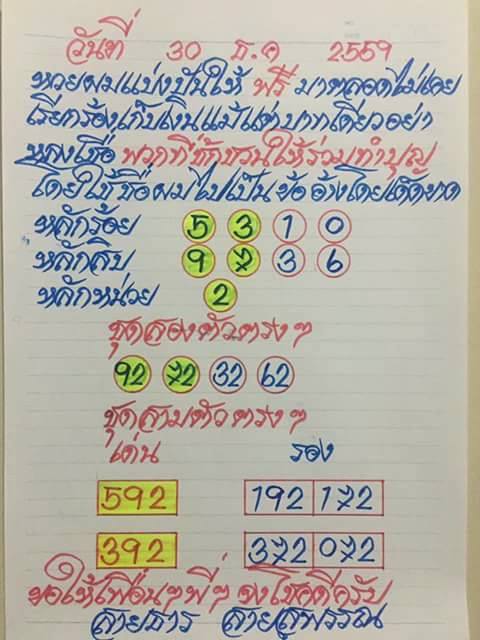 วันที่ 30 ธ.ค 2559
หวยผมแบ่งปันให้ ฟรี มาตลอดไม่เคย
เรียกร้องเก็บเงินแม้แต่บาทเดียวอย่า
หลงเชื่อ พวกที่ชักชวนให้ร่วมทำบุญ
โดยใช้ชื่อผมไปเป็นข้ออ้างโดยเด็ดขาด
หลักร้อย 5 3 1 0
หลักสิบ 9 7 3 6
หลักหน่วย 2
ชุดสองตัวตรงๆ
92 72 32 62
ชุดสามตัวตรงๆ
เด่น รอง
592 192 172
392 372 072
ขอให้เพื่อนๆพี่ๆ จงโชคดีครับ
สายธาร สายสุพรรณ